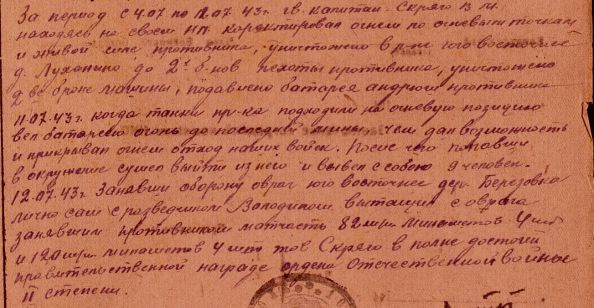 За период с 4.07 по 12.07.43г. гв. капитан Скряго В.М.
находясь на своем НП корректировал огнем по огневым точкам
и живой силе противника, уничтожено в р-не юго восточнее
д. Луханино до 2х б-нов пехоты противника, уничтожено
две броне машины, подавлено батарея противника
11.07.43г. когда танки пр-ка подходили на огневую позицию
вел батареею огонь до последней мины, чем дал возможность
и прикрывал огнем отход наших войск. После что попавши
в окружение сумел выйти из него и вывел с собою 9 человек.
12.07.43г. Занявши оборону овраг юго восточнее дер. Березовка
лично сам с разведчиком Володиным вытащил с оврага
занявшим противником матчасть 82 м/м минометов 4 шт
и 120 м/м. минометов 4 шт тов Скряго в полне достоин
правительственной награде ордена Отечественной войны
II степени.